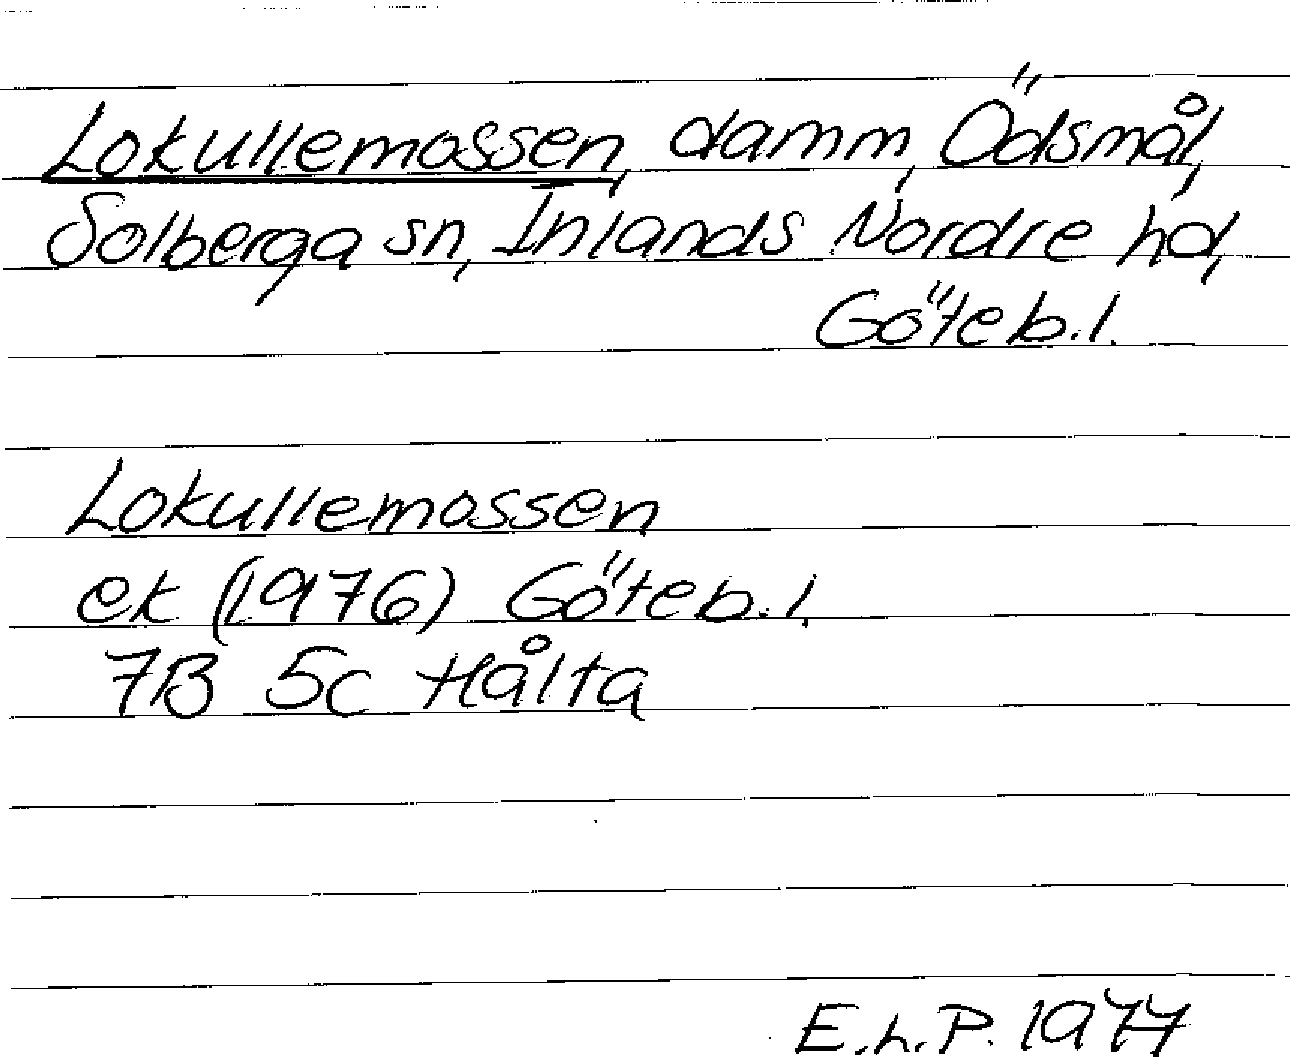 Lokullemossen, damm, Ödsmål,
Solberga sn, Inlands Nordre hd,
Göteb.l.
Lokullemossen
ek (1976) Göteb.l.
7B 5c Hålta
E.L.P. 1977